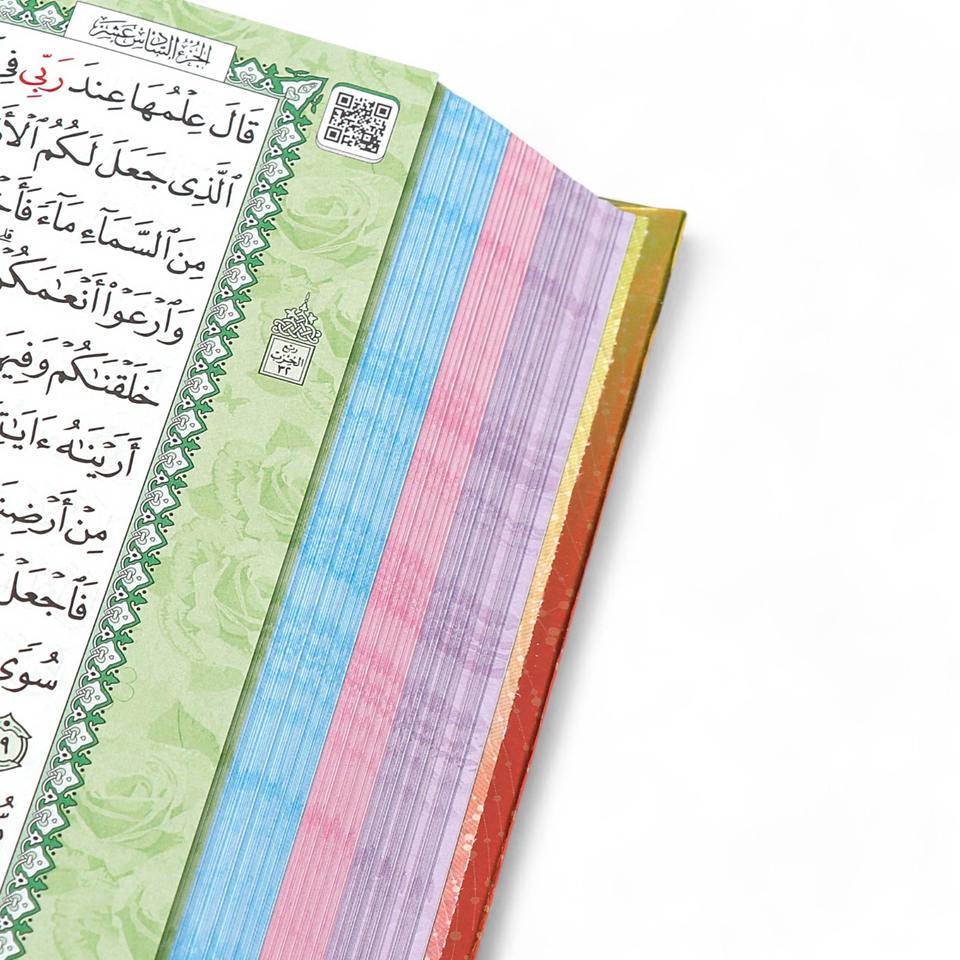 الجزء السادس عشر
قَالَ عِلْمُهَا عِندَ رَبِّي فِي
ٱلَّذِي جَعَلَ لَكُمُ
مِنَ ٱلسَّمَآءِ مَآءً
وَٱرْعَوْا۟ أَنْعَٰمَكُمْ
خَلَقْنَٰكُمْ وَفِيهَا
أَرَيْنَٰهُ ءَايَٰتِنَا
مِنْ أَرْضِنَا
فَٱجْعَلْ
سُوًى
ربع
الحزب
٣٢